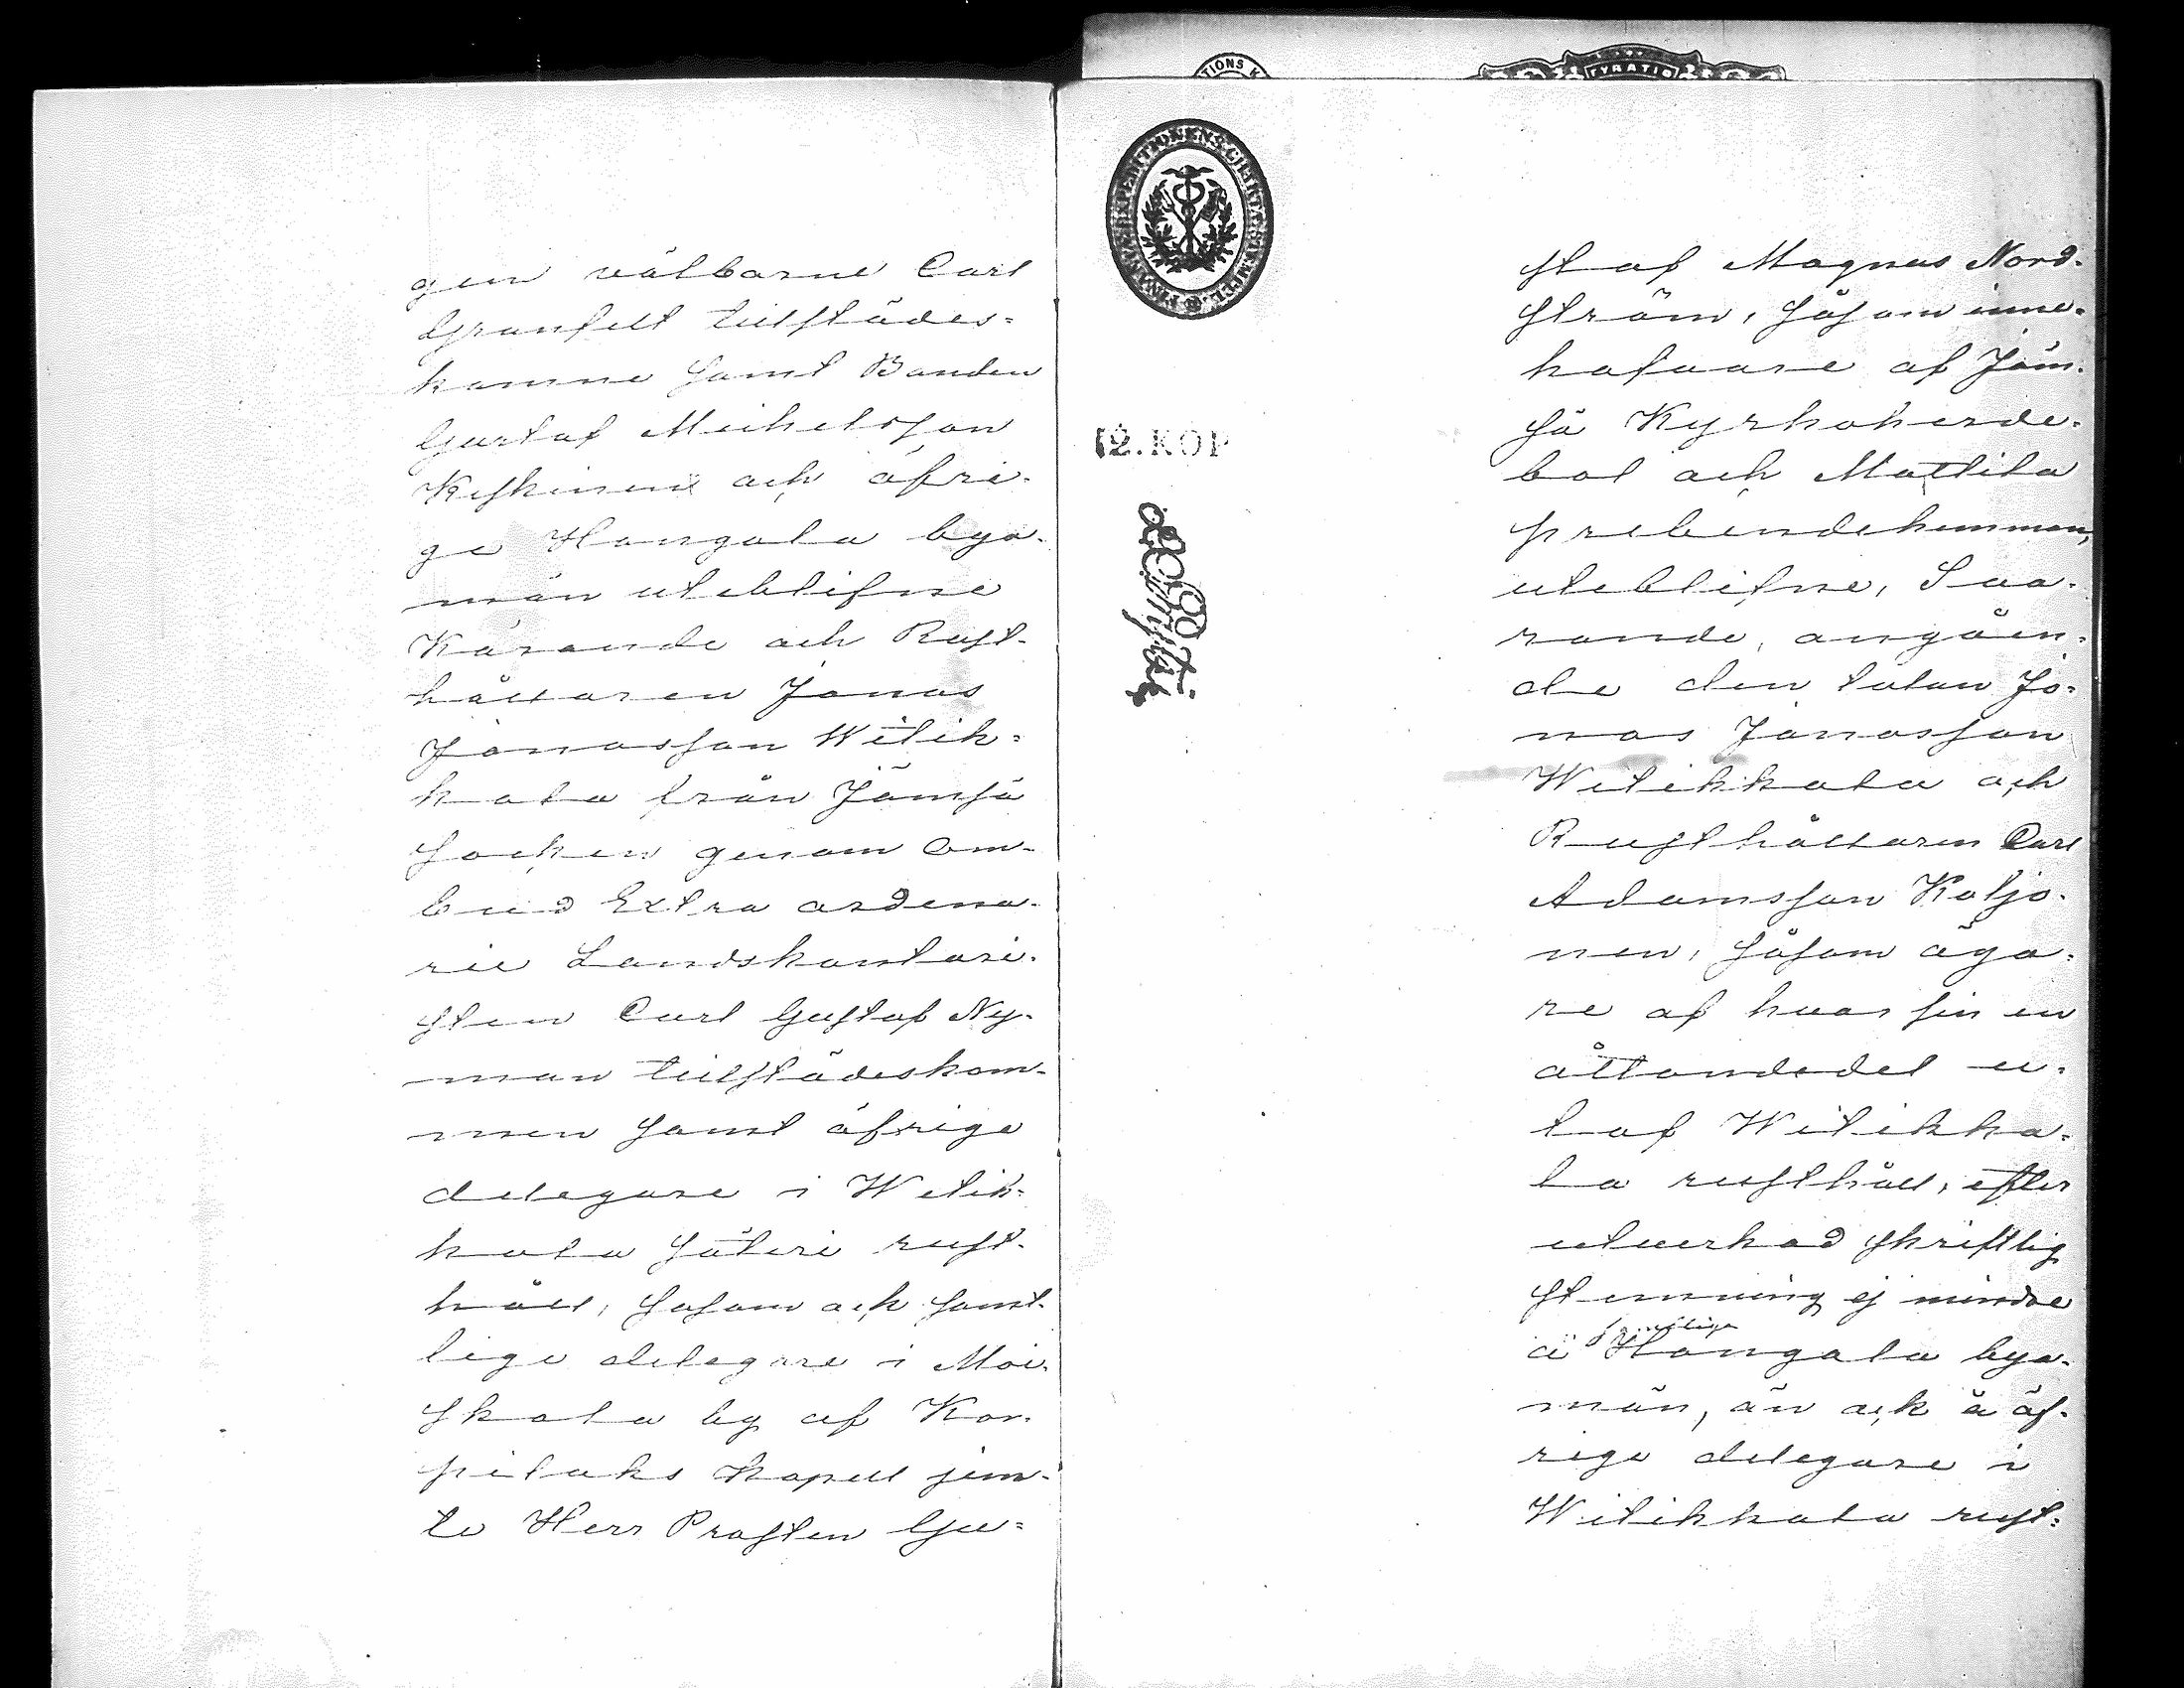 gen välborne Carl
Granfelt tillstädes-
komne samt Bonden
Gustaf Michelsson
Keskinen och öfri-
ge Hangala bya-
män uteblifne
Kärande och Rust-
hållaren Jonas
Jonasson Witik-
kala från Jämsä
Socken genom Om-
bud Extra ordina-
rie Landskontori-
sten Carl Gustaf Ny-
man tillstädeskom-
men samt öfrige
delegare i Witik-
kala Säteri rust-
håll, såsom och samt-
lige delegare i Moi-
skala by af Kor-
pilaks Kapell jem-
te Herr Prosten Gu-
FINANS EXPEDITIONENS CHARTÆ STÄMPEL
12. KOP
staf Magnus Nord-
ström, såsom inne-
hafvare af Jäm-
sä Kyrkoherde-
bol och Mattila
prebendehemman,
uteblifne, Sva-
rande, angåen-
de den talan Jo-
nas Jonasson
Witikkala och
Rusthållaren Carl
Adamsson Koljo-
nen, såsom äga-
re af hvar sin en
åttondedel u-
taf Witikka-
la rusthåll, efter
utverkad skriftlig
stemning ej mindre
å samtlige Hangala bya-
män, än ock å öf-
rige delegare i
Witikkala rust-